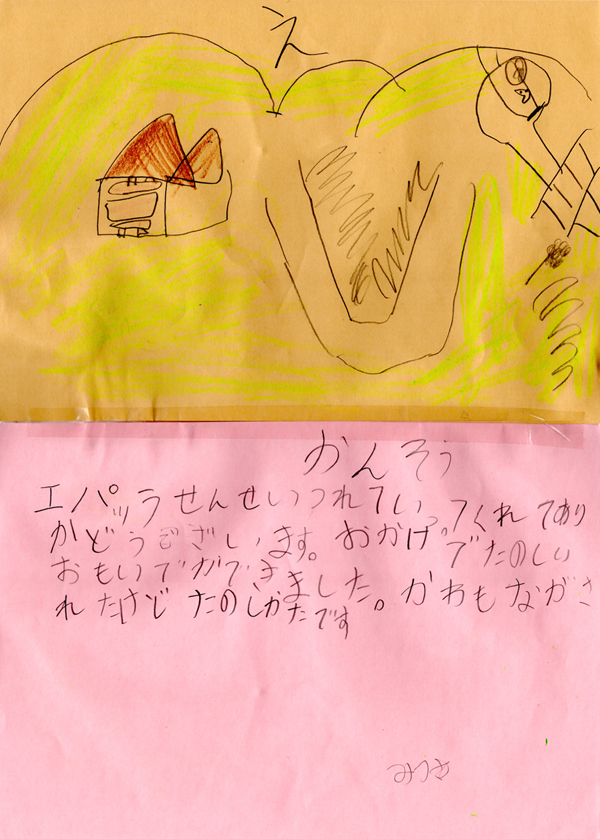 え
おんそう
エパッうせんせいつれていってくれてあり
がどうございます。おかげでたのしい
おもいでができました。かわもながさ
れたけどたのしかたです
みつき